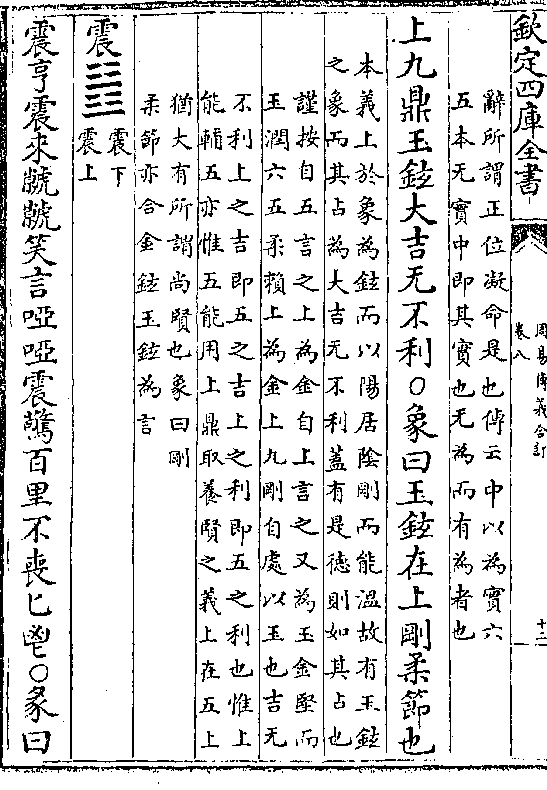 欽定四庫全書
周易傳義合訂
卷八
十二
辭所謂正位凝命是也傳云中以為實六
五本无實中即其實也无為而有為者也
上九鼎玉鉉大吉无不利○象曰玉鉉在上剛柔節也
本義上於象為鉉而以陽居陰剛而能溫故有玉鉉
之象而其占為大吉无不利蓋有是德則如其占也
謹按自五言之上為金自上言之又為玉金堅而
玉潤六五柔賴上為金上九剛自處以玉也吉无
不利上之吉即五之吉上之利即五之利也惟上
能輔五亦惟五能用上鼎取養賢之義上在五上
猶大有所謂尚賢也象曰剛
柔節亦合金鉉玉鉉為言
震䷲
震下
震上
震亨震來虩虩笑言啞啞震驚百里不喪匕鬯○彖曰